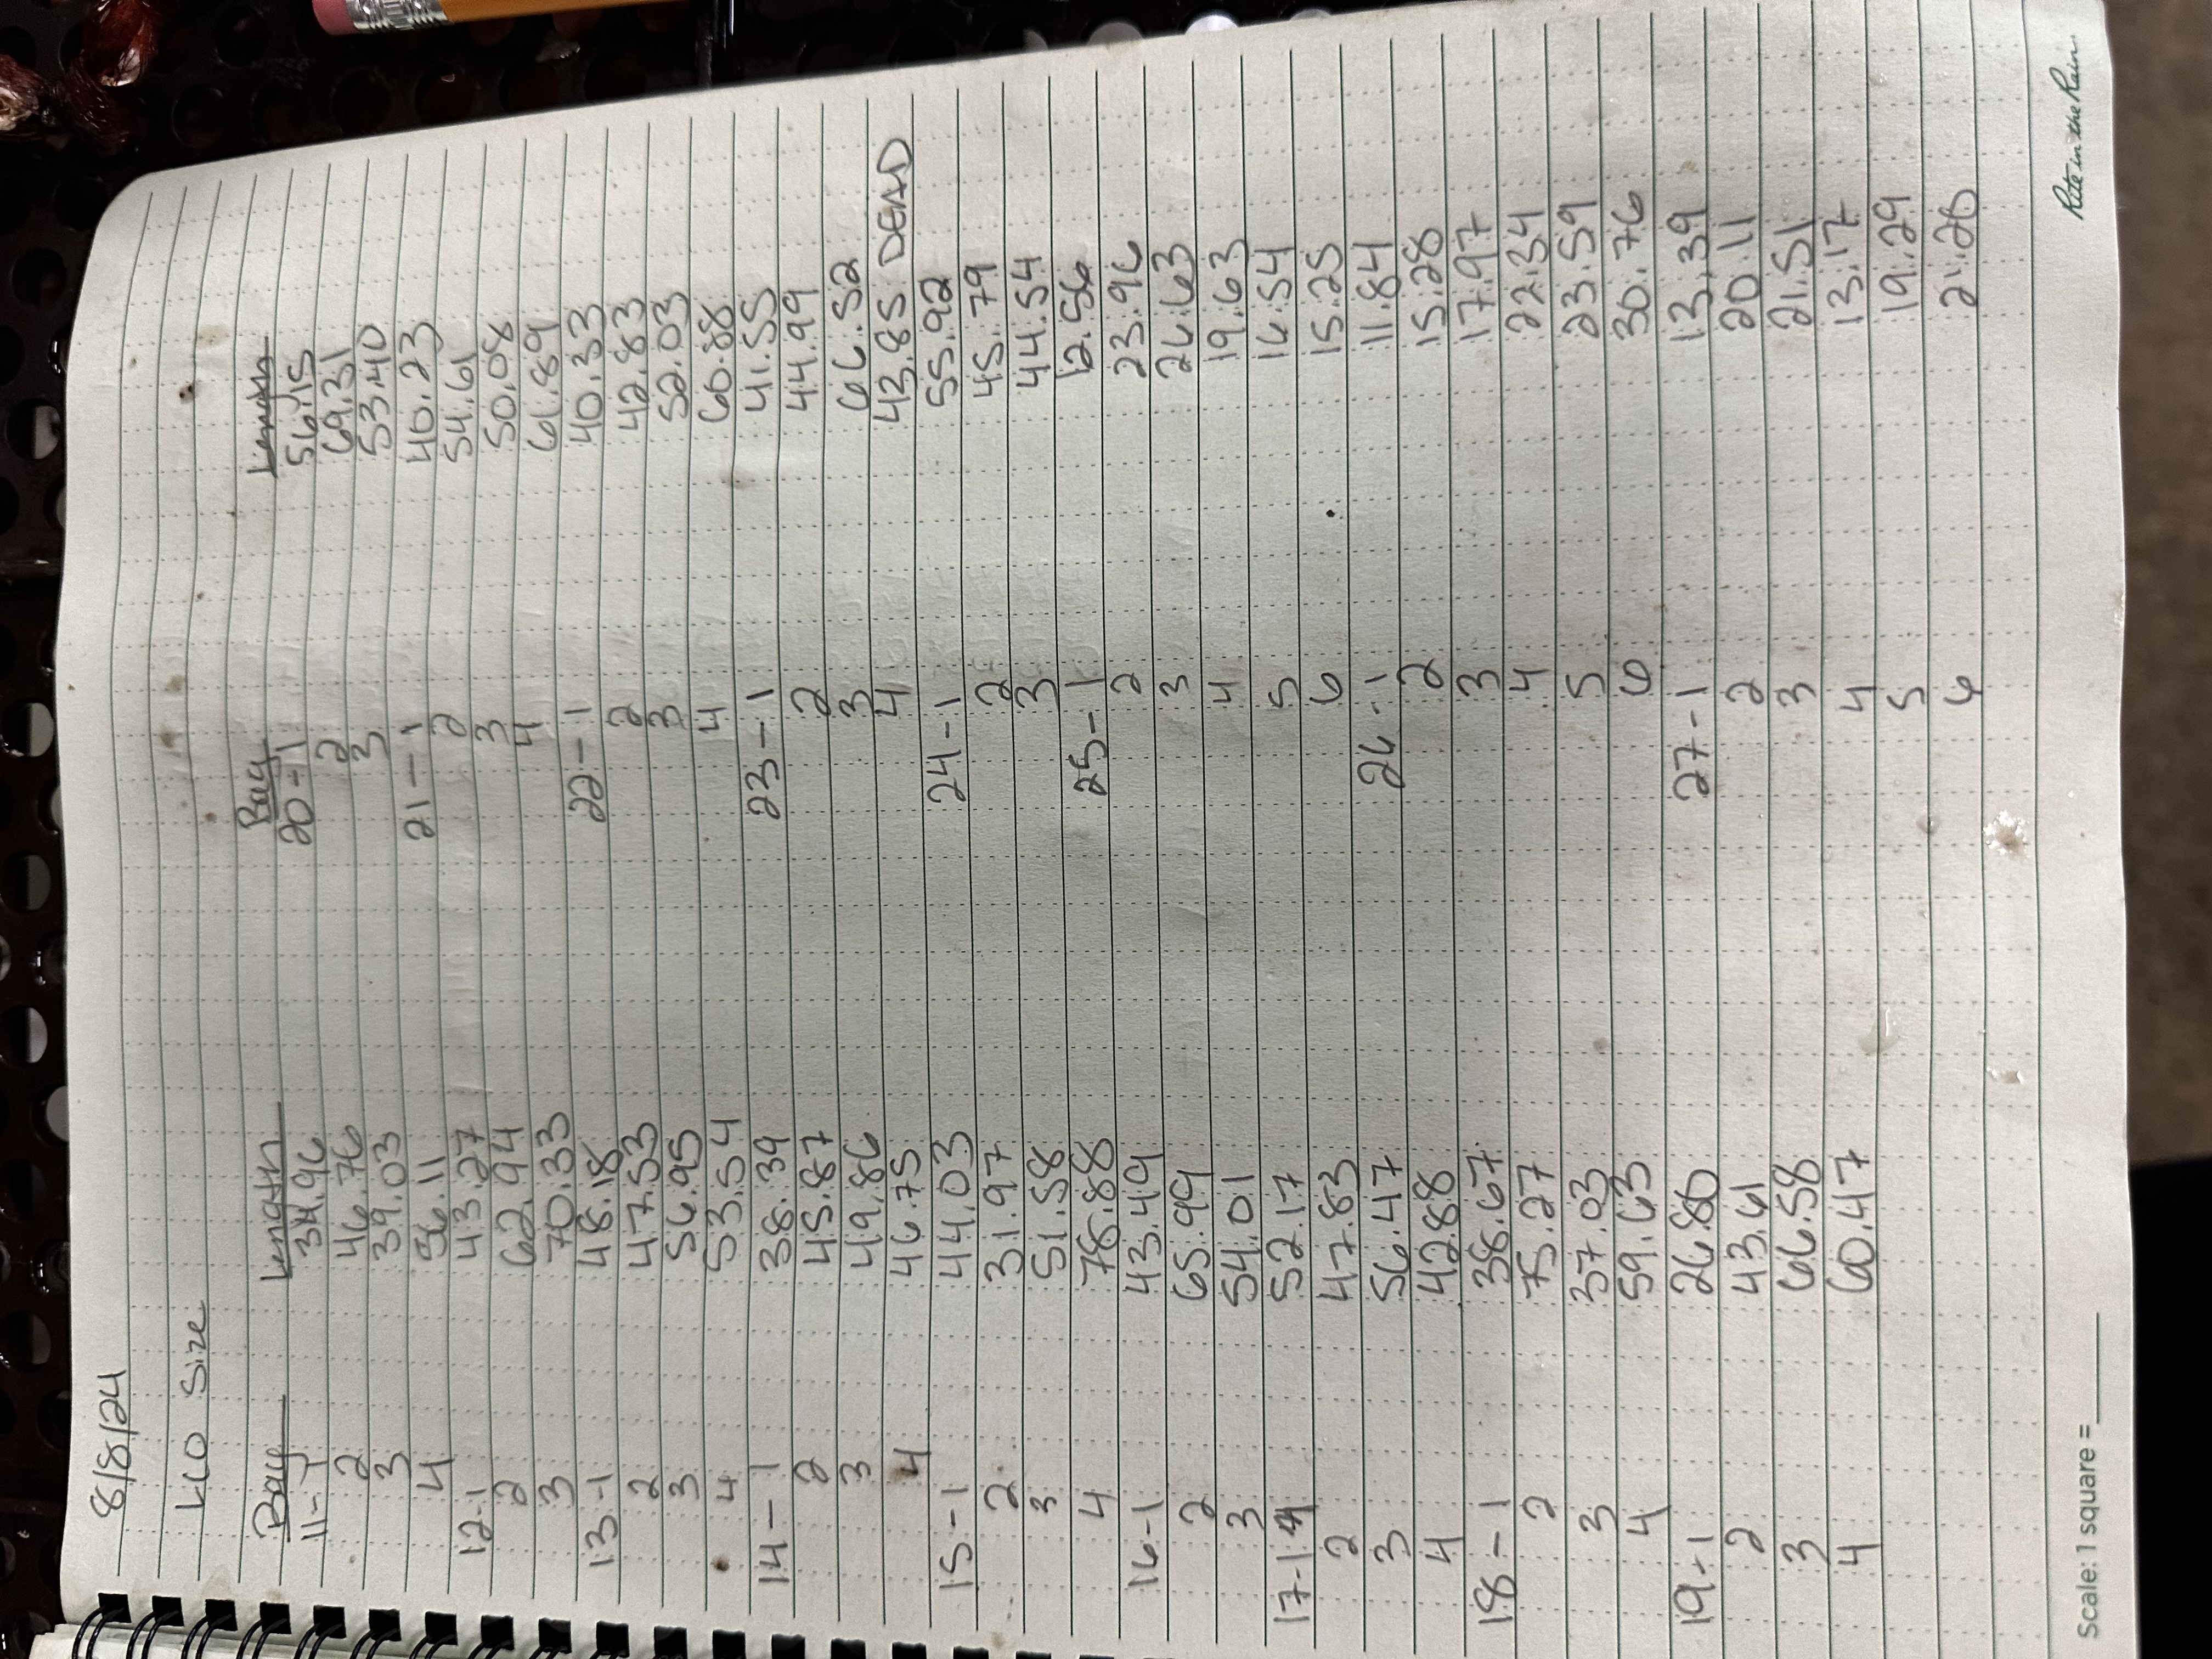 8/8/24
LCO Size
Bag Length
11-1 34.96
2 46.76
3 39.03
4 56.11
12-1 43.27
2 62.94
3 70.33
13-1 48.18
2 47.53
3 56.95
4 53.54
14-1 38.39
2 45.87
3 49.86
4 46.75
15-1 44.03
2 31.97
3 51.58
4 78.88
16-1 43.49
2 65.99
3 54.01
17-1 52.17
2 47.83
3 56.47
4 42.88
18-1 38.67
2 75.27
3 37.03
4 59.63
19-1 26.80
2 43.61
3 66.58
4 60.47
Bag Length
20-1 56.15
2 69.31
3 53.40
21-1 40.23
2 54.61
3 50.08
4 61.89
22-1 40.33
2 42.83
3 52.03
4 60.88
23-1 41.55
2 44.99
3 66.52
4 43.85 DEAD
24-1 55.92
2 45.79
3 44.54
25-1 12.56
2 23.96
3 26.63
4 19.63
5 16.54
6 15.25
26-1 11.84
2 15.28
3 17.97
4 22.34
5 23.59
6 30.76
27-1 13.39
2 20.11
3 21.51
4 13.17
5 19.29
6 21.20
Scale: 1 square =
Rite in the Rain